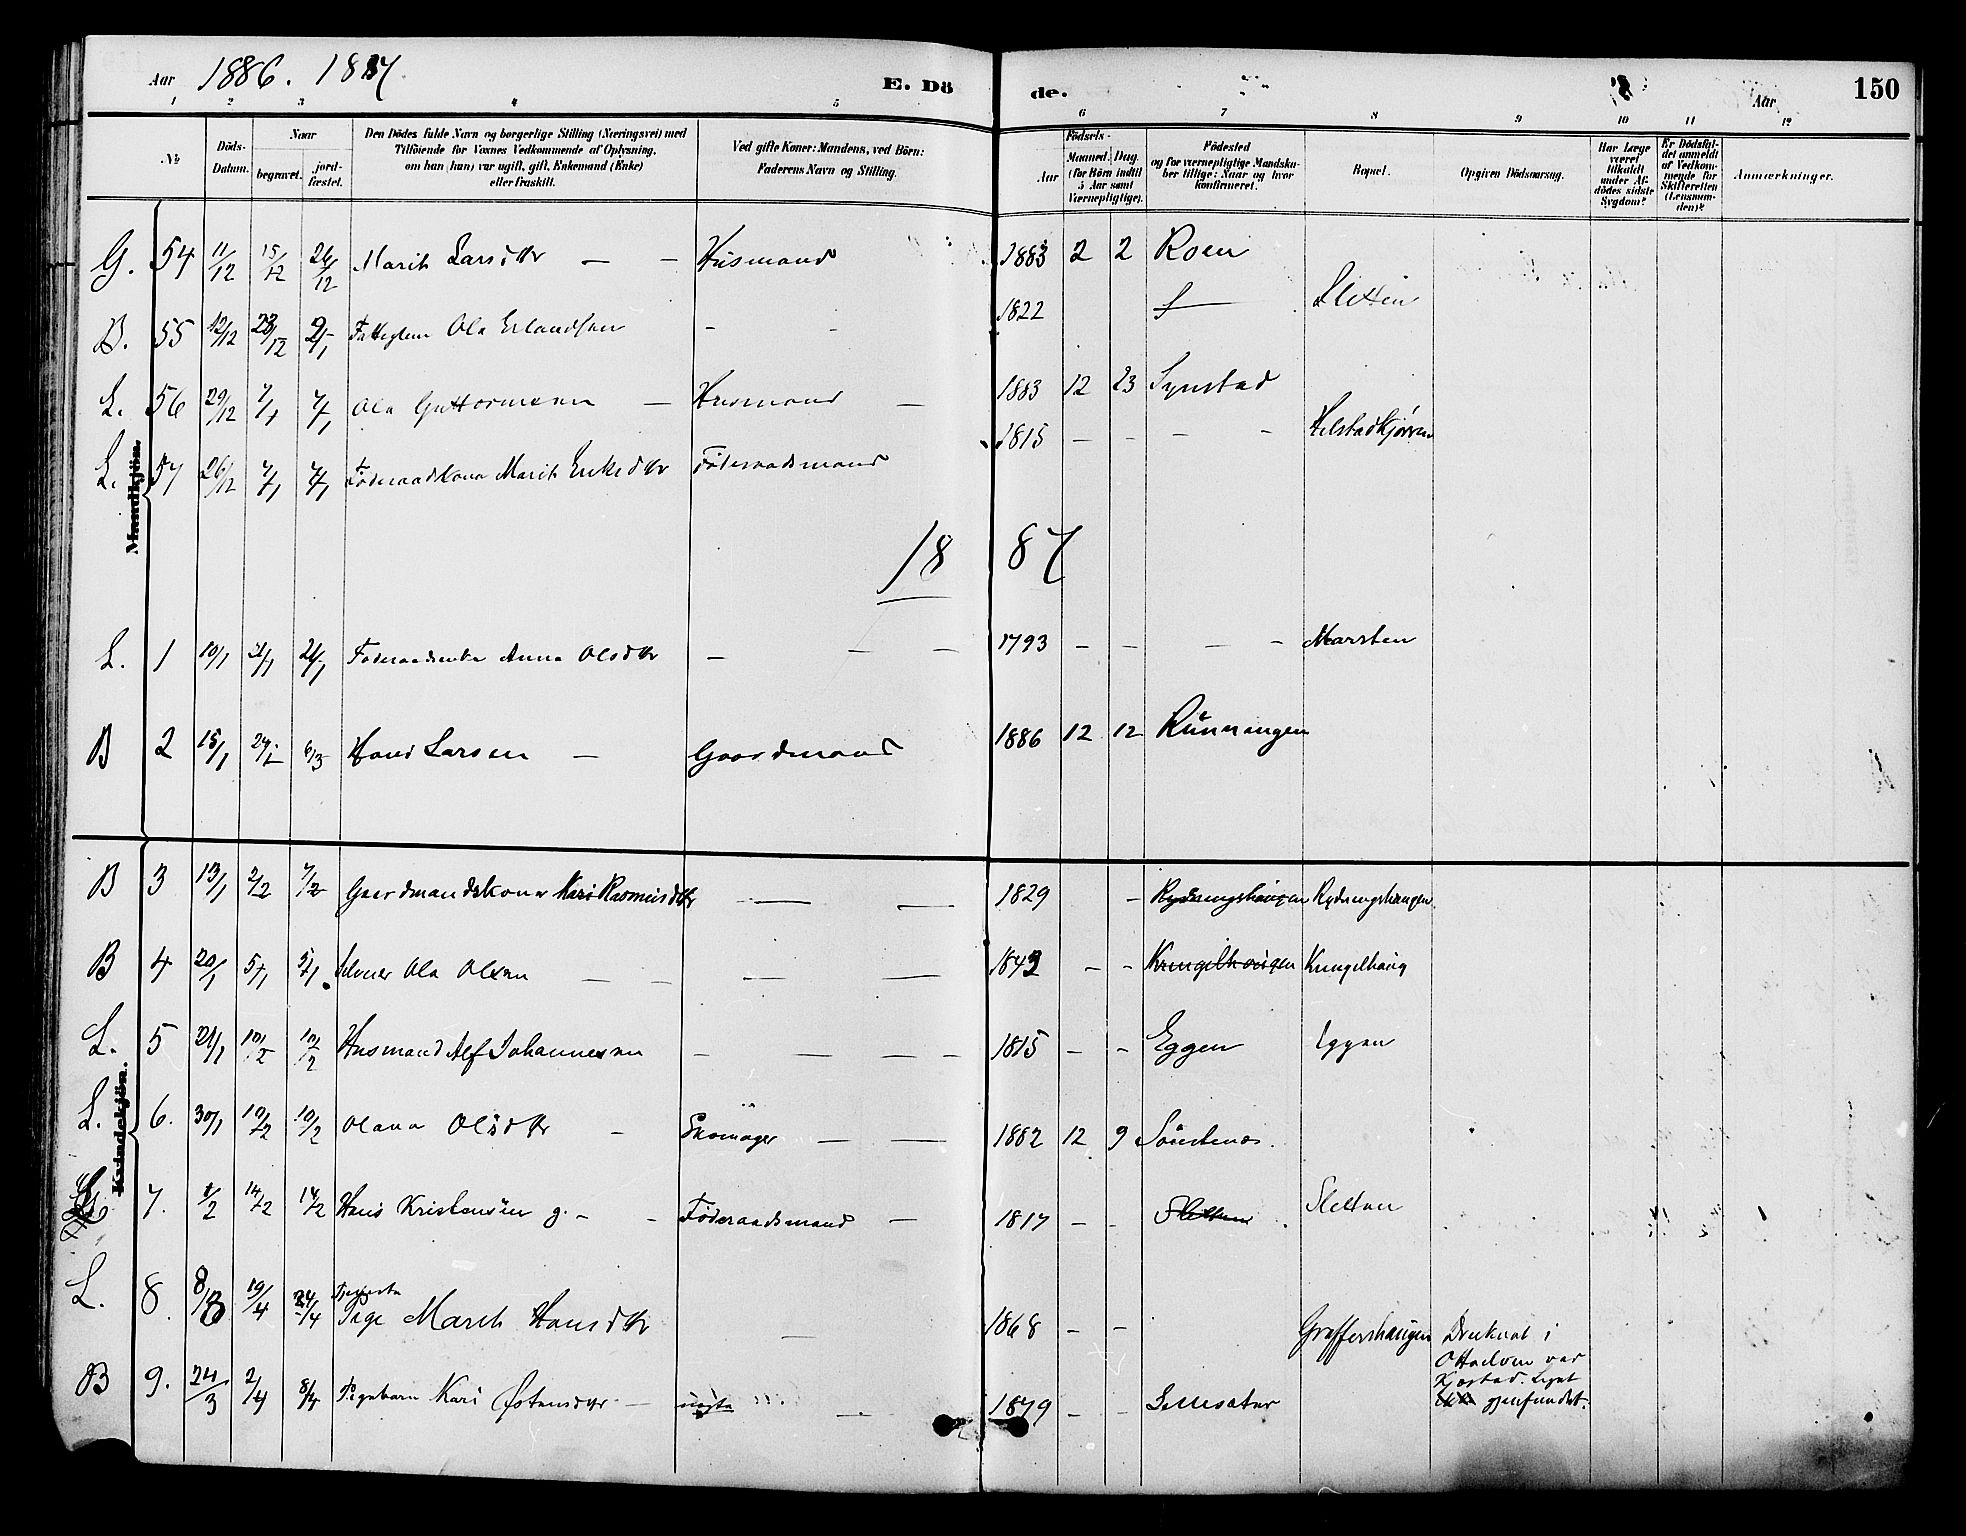 Aar 1886. 1887
E. Dö de.
Aar
150
1 2 3 4 5 6 7 8 9 10 11 12
№
Döds-Datum.
Naar begravet. jordfæstet.
Den Dödes fulde Navn og borgerlige Stilling (Næringsvei) med Tilföiende for Voxnes Vedkommende af Oplysning, om han (hun) var ugift, gift, Enkemand (Enke) eller fraskilt.
Ved gifte Koner: Mandens, ved Börn: Faderens Navn og Stilling.
Födsels-
Aar Maaned. Dag. (for Börn indtil 5 Aar samt Værnepligtige).
Födested og for værnepligtige Mandskaber tillige: Naar og hvor konfirmeret.
Bopæl.
Opgiven Dödsaarsag.
Har Læge været tilkaldt under Afdödes sidste Sygdom?
Er Dödsfaldet anmeldt af Vedkommende for Skifteretten (Lensmanden)?
Anmærkninger.
Mandkjön.
G. 54 11/12 15/12 26/12 Marit Larsdtr — — Husmand 1883 2 2 Roen
B. 55 12/12 23/12 2/1 Ola Erlandsen - - 1822 Sletten
L. 56 29/12 7/1 7/1 Ola Guttormsen — Husmand — 1883 12 23 Synstad
L. 57 26/12 7/1 7/1 Föderaadkona Marit Eriksdtr Föderaadsmand 1815 - - - -
1887
L. 1 10/1 21/1 21/1 Föderaadsenke Anna Olsdtr — — — 1793 - - - - Marsten
B 2 15/1 6/3 Hans Larsen — Gaardmand 1886 12 12 Runningen
Kvindekjön.
B 3 13/1 2/2 7/2 Gaardmandskone Kari Rasmusdtr — — 1829 - Rydningshaugen Rydningshaugen
B 4 20/1 5/1 5/1 Ola Olsen — — — — 1843 - - Kringelhaugen Kringelhaug
L. 5 21/1 10/2 10/2 Husmand Alf Johannesen - — — — 1815 - - Eggen Eggen
L. 6. 30/1 10/2 10/2 Olana Olsdtr - Skomager — — 1882 12 9
L 7. 1/2 14/2 14/2 Hans Kristensen g. - - Föderaadsmand — 1817 - - Sletten Sletten
L. 8. 8/3 19/4 24/4 Tjeneste Pige Marit Hansdtr — 1868 - - Graffershaugen Druknet i Ottaelven ved
B 9. 24/3 2/4 8/4 Pigebarn Kari Østensdtr — uægte — 1879 - - Selsseter
Kjæstad. Liget
ikke gjenfundet.